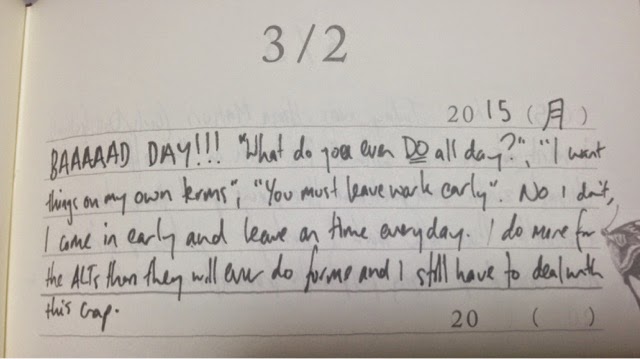 3/2
2015 (月)
BAAAAAD DAY!!! "What do you even DO all day?", "I want
things on my own terms", "You must leave work early". No I don't,
I come in early and leave on time everyday. I do more for
the ALTs than they will ever do for me and I still have to deal with
this crap.
20 ( )